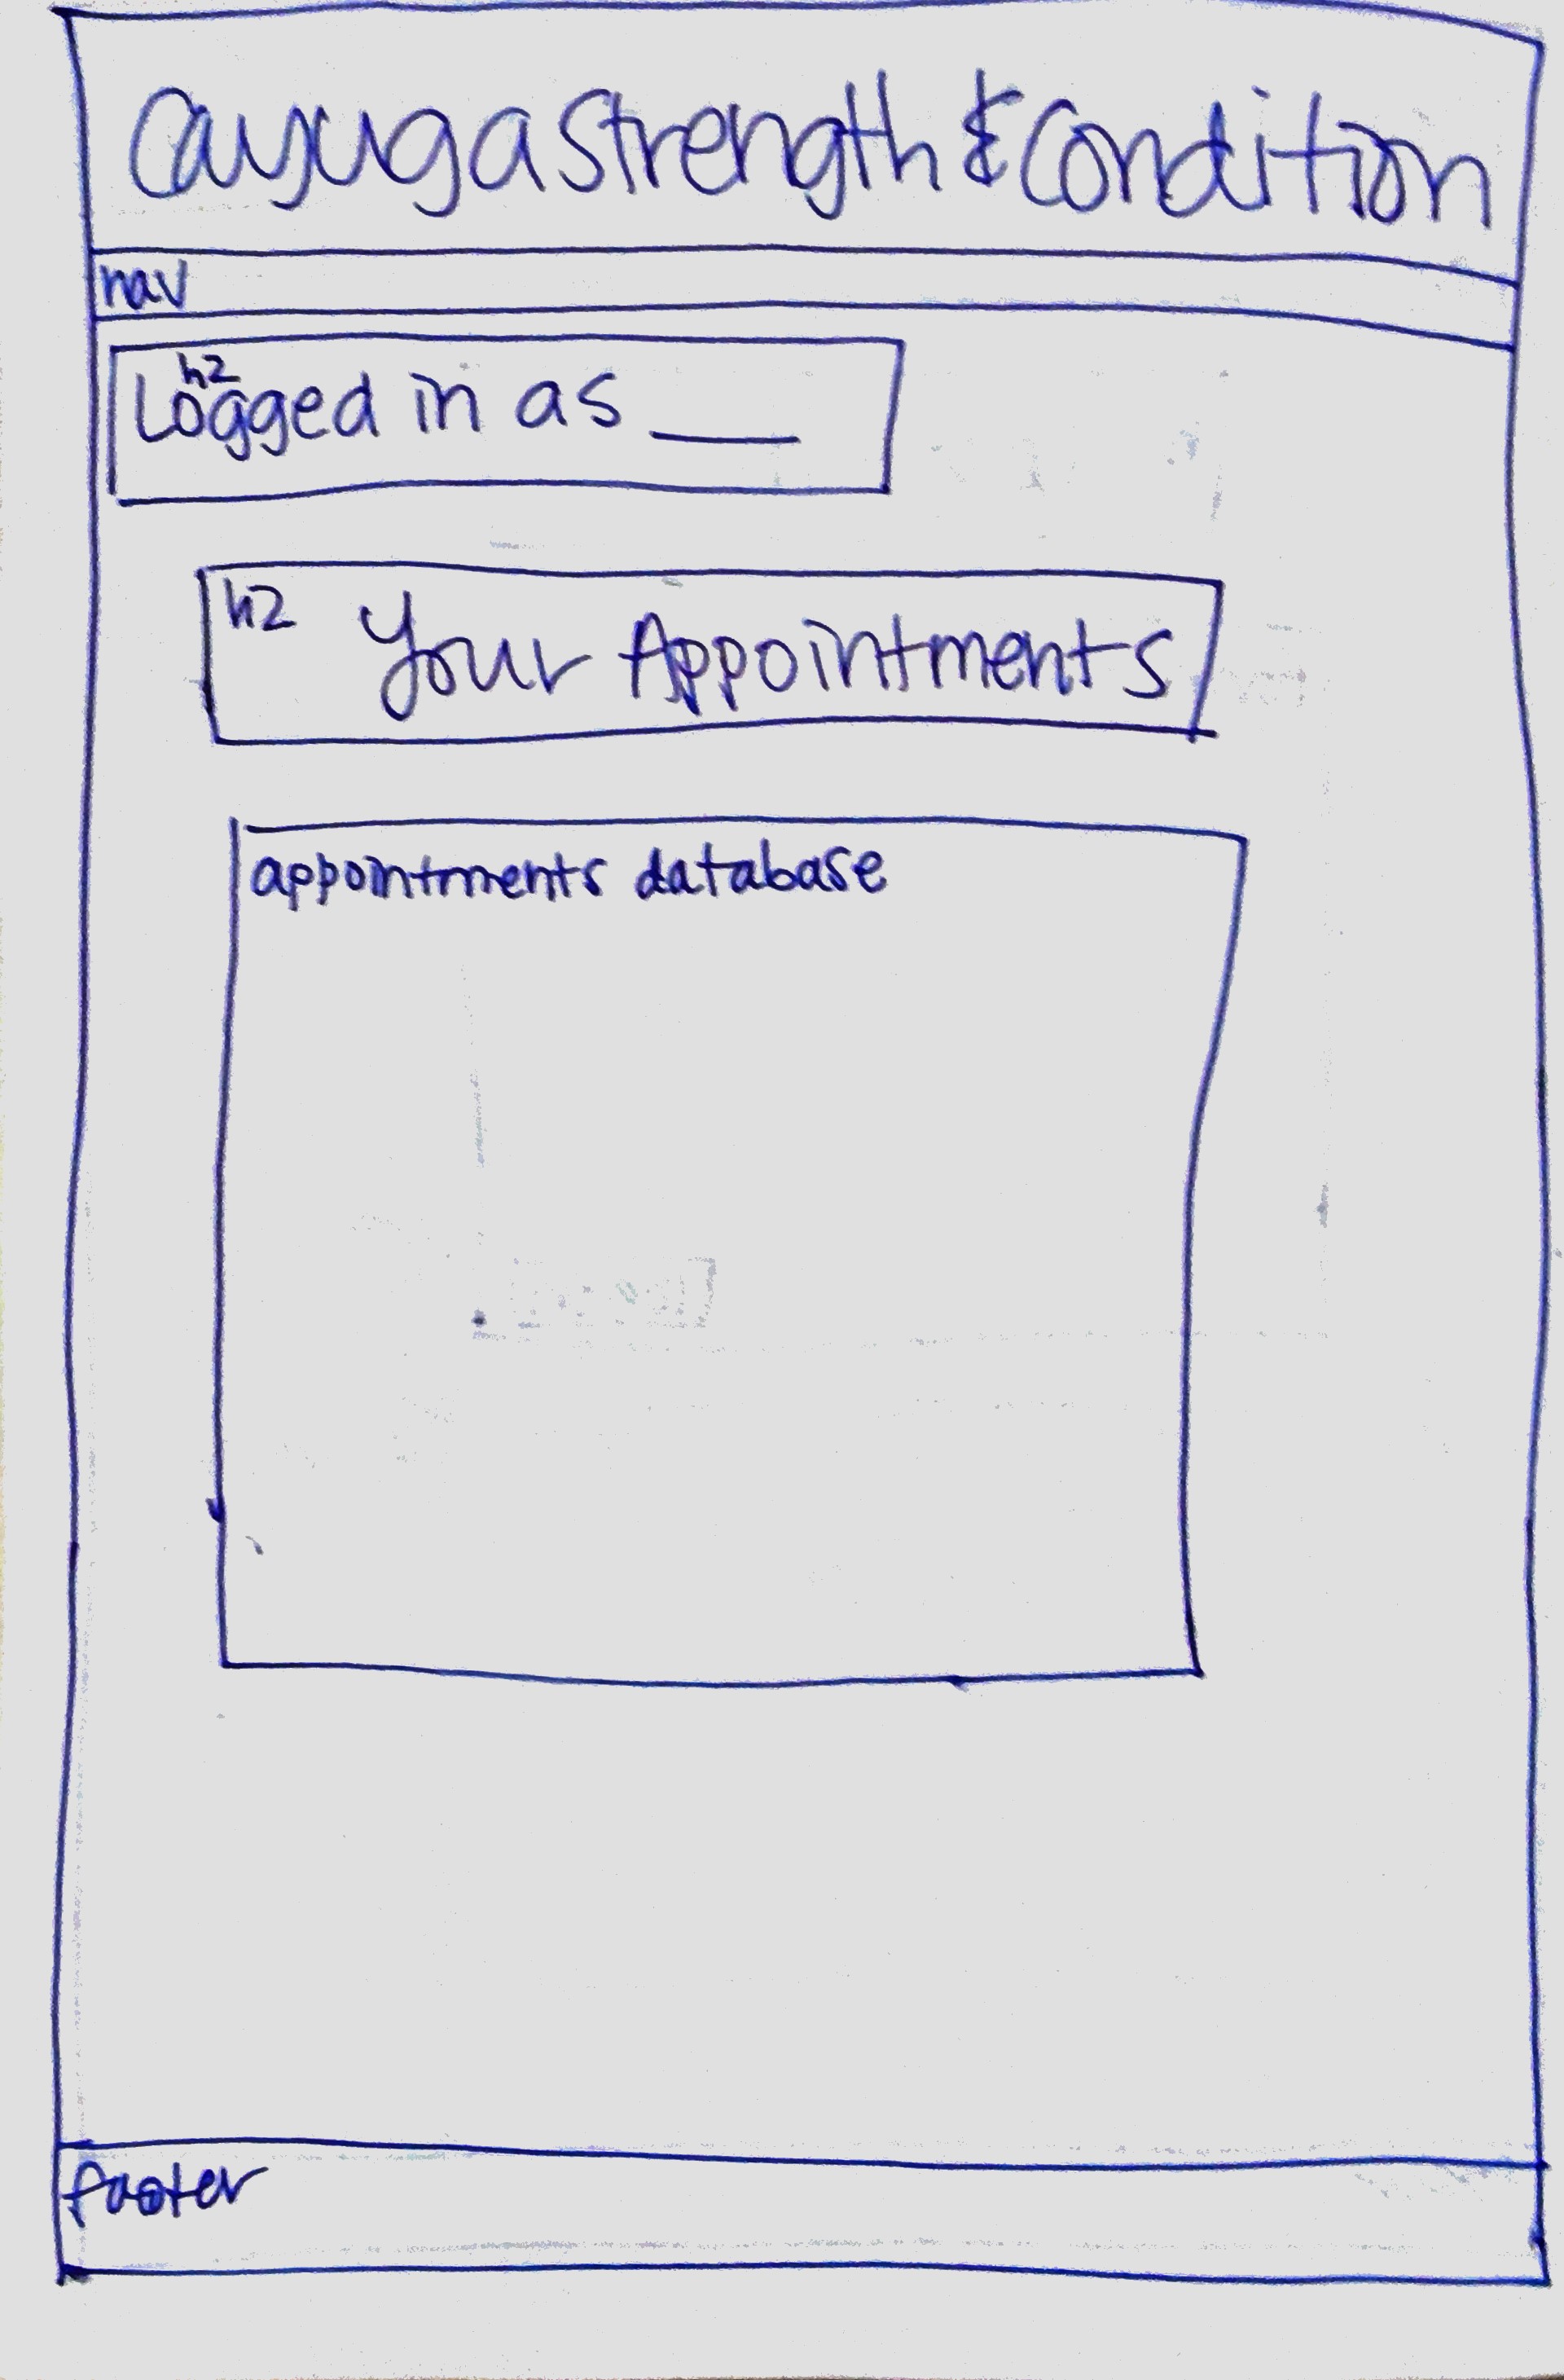 Cayuga Strength & Condition
nav
h2
Logged in as ____
h2 Your Appointments
appointments database
footer